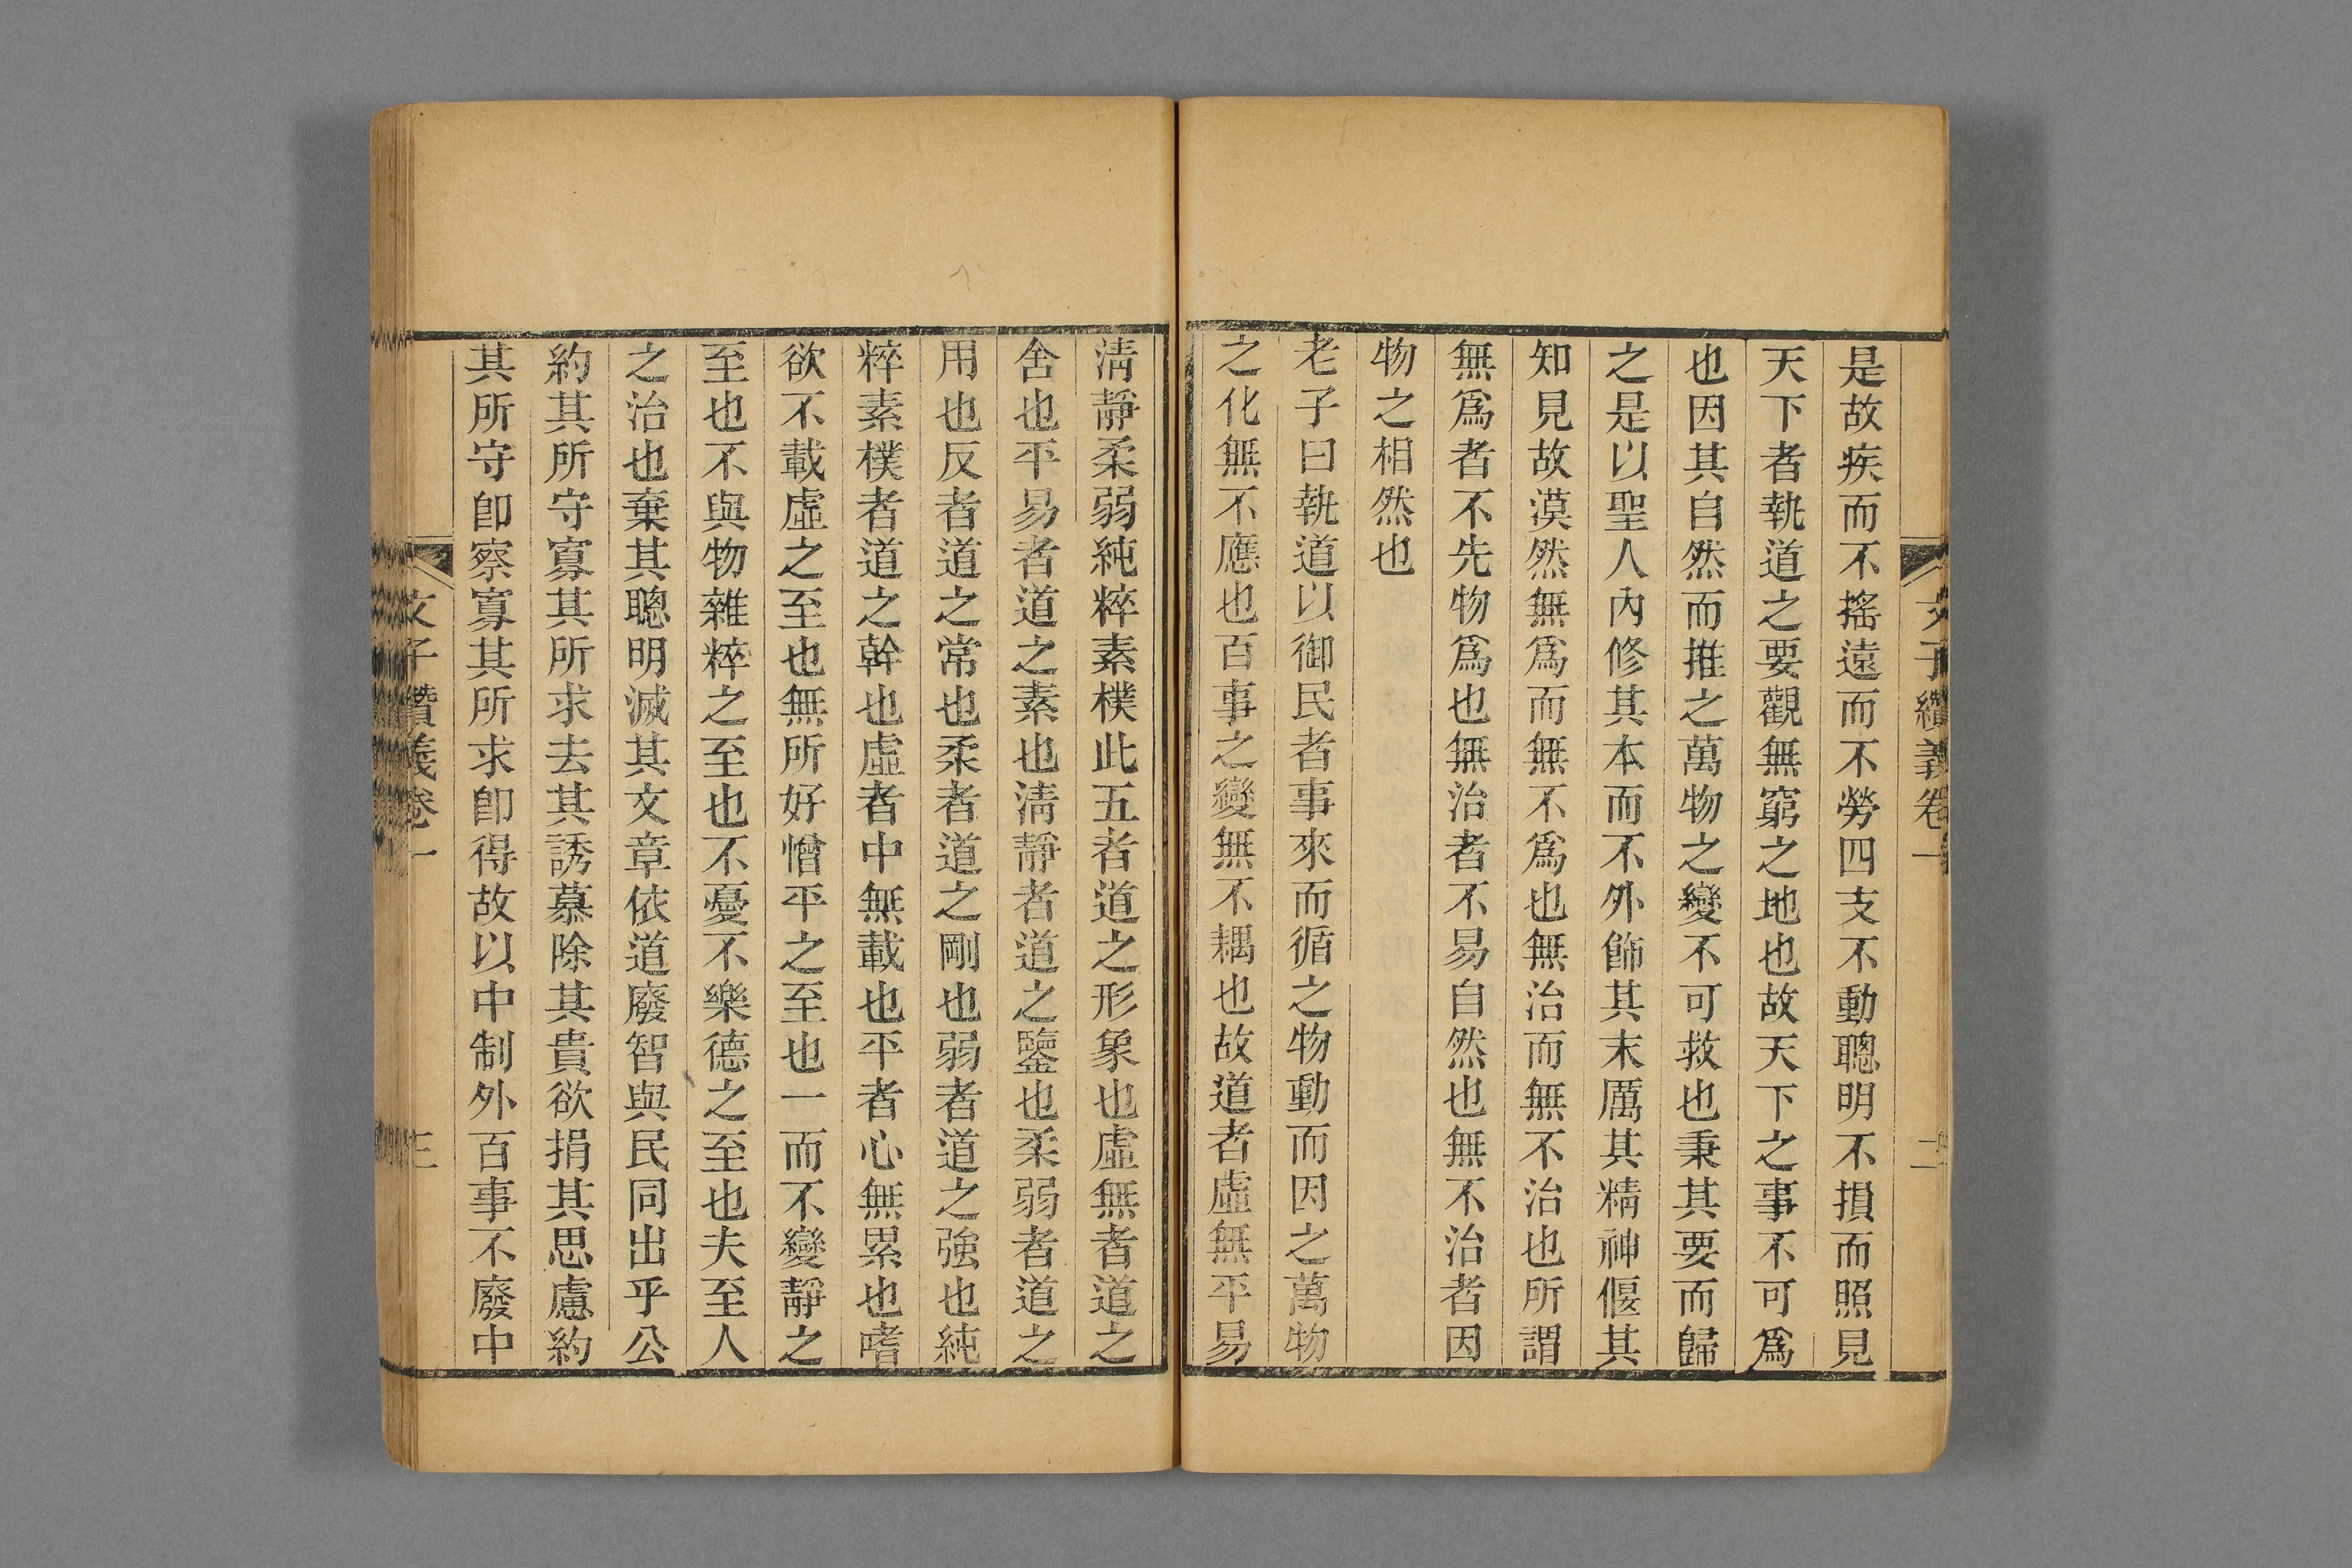 文子纘義卷一
二
是故疾而不搖遠而不勞四支不動聰明不損而照見
天下者執道之要觀無窮之地也故天下之事不可爲
也因其自然而推之萬物之變不可救也秉其要而歸
之是以聖人內修其本而不外飾其末厲其精神偃其
知見故漠然無爲而無不爲也無治而無不治也所謂
無爲者不先物爲也無治者不易自然也無不治者因
物之相然也
老子曰執道以御民者事來而循之物動而因之萬物
之化無不應也百事之變無不耦也故道者虛無平易
淸靜柔弱純粹素樸此五者道之形象也虛無者道之
舍也平易者道之素也淸靜者道之鑒也柔弱者道之
用也反者道之常也柔者道之剛也弱者道之強也純
粹素樸者道之幹也虛者中無載也平者心無累也嗜
欲不載虛之至也無所好憎平之至也一而不變靜之
至也不與物雜粹之至也不憂不樂德之至也夫至人
之治也棄其聰明滅其文章依道廢智與民同出乎公
約其所守寡其所求去其誘慕除其貴欲捐其思慮約
其所守卽察寡其所求卽得故以中制外百事不廢中
文子纘義卷一
三